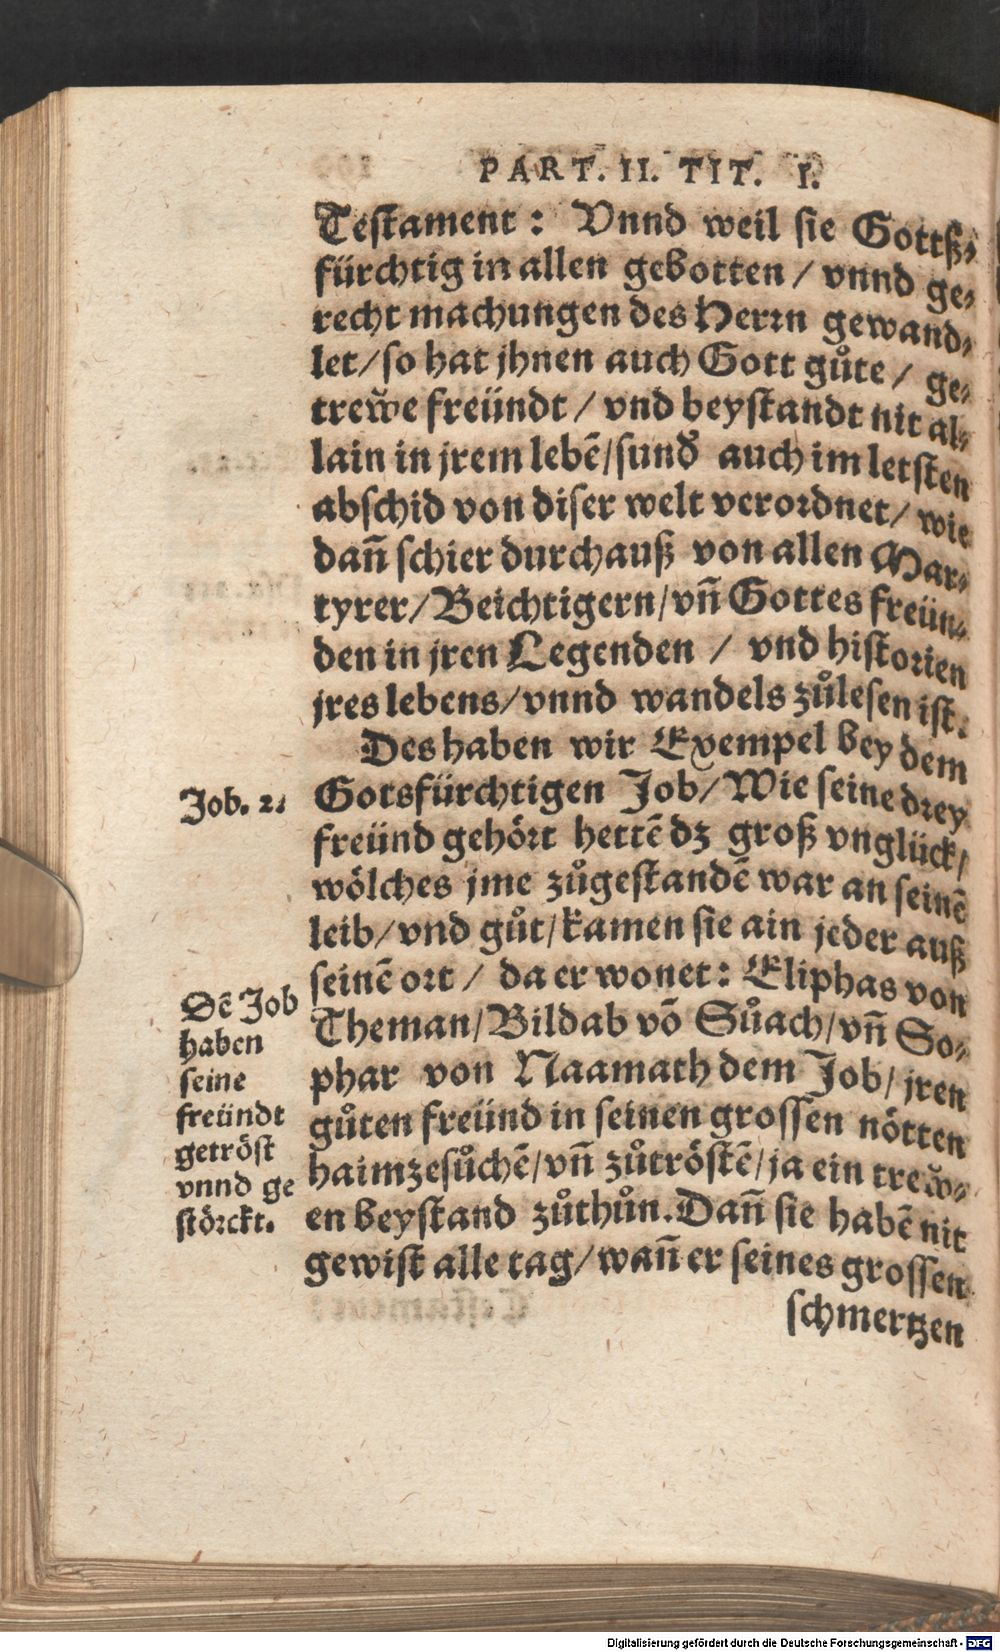 PART. II. TIT. I.
Testament: Vnnd weil sie Gottß⸗
fürchtig in allen gebotten / vnnd ge⸗
recht machungen des Herrn gewand⸗
let/so hat jhnen auch Gott gůte / ge⸗
trew̆e freündt / vnd beystandt nit al⸗
lain in jrem lebē/sund̕ auch im letsten
abschid von diser welt verordnet/ wie
dañ schier durchauß von allen Mar⸗
tyrer/Beichtigern/vñ Gottes freün⸗
den in jren Legenden / vnd historien
jres lebens/vnnd wandels zůlesen ist.
Des haben wir Exempel bey dem
Job. 2.
Gotsfürchtigen Job/Wie seine drey
freünd gehört hettē dz groß vnglück/
wölches jme zůgestandē war an seinē
leib/vnd gůt/kamen sie ain jeder auß
seinē ort / da er wonet: Eliphas von
Dē Job
haben
seine
freündt
getröst
vnnd ge
störckt.
Theman/Bildab vō Sůach/vñ So⸗
phar von Naamath dem Job/ jren
gůten freünd in seinen grossen nötten
haimzesůchē/vñ zůtröstē/ja ein trew̆⸗
en beystand zůthůn.Dañ sie habē nit
gewist alle tag/wañ er seines grossen
schmertzen
Digitalisierung gefördert durch die Deutsche Forschungsgemeinschaft - DFG